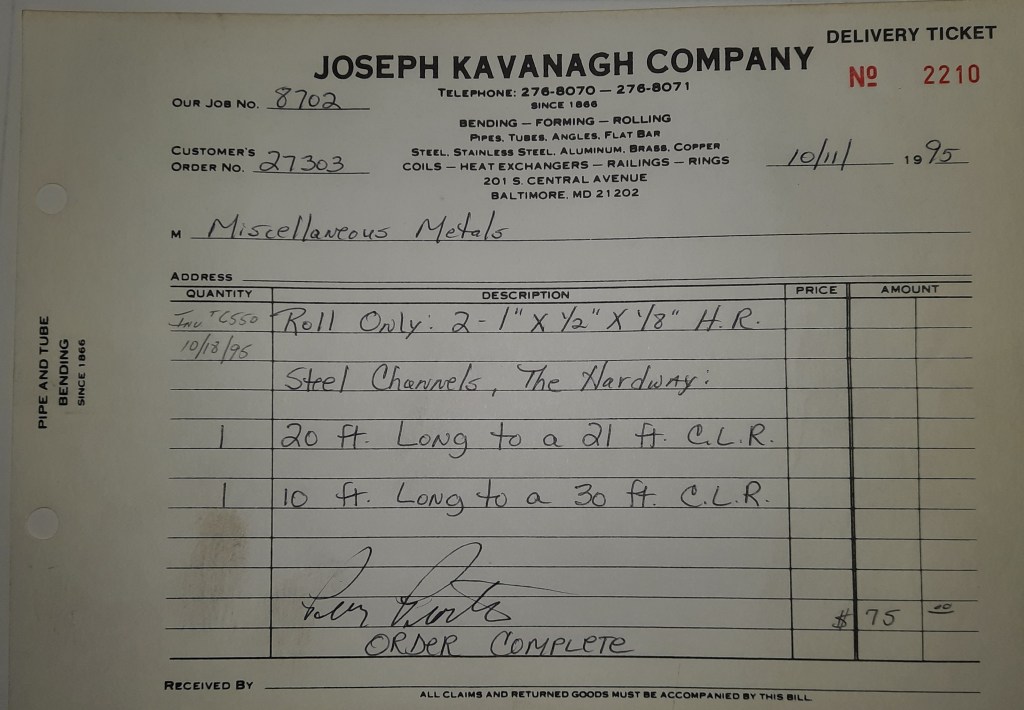 DELIVERY TICKET
JOSEPH KAVANAGH COMPANY
Nº 2210
TELEPHONE: 276-8070 — 276-8071
SINCE 1866
OUR JOB NO. 8702
BENDING — FORMING — ROLLING
PIPES, TUBES, ANGLES, FLAT BAR
STEEL, STAINLESS STEEL, ALUMINUM, BRASS, COPPER
COILS — HEAT EXCHANGERS — RAILINGS — RINGS
201 S. CENTRAL AVENUE
BALTIMORE, MD 21202
CUSTOMER'S
ORDER NO. 27303
10/11/ 1995
M Miscellaneous Metals
ADDRESS
QUANTITY DESCRIPTION PRICE AMOUNT
Inv # 6550 Roll Only: 2 - 1" X 1/2" X 1/8" H.R.
10/18/95
Steel Channels, The Hardway:
1 20 ft. Long to a 21 ft. C.L.R.
1 10 ft. Long to a 30 ft. C.L.R.
$ 75 00
ORDER COMPLETE
RECEIVED BY
ALL CLAIMS AND RETURNED GOODS MUST BE ACCOMPANIED BY THIS BILL
PIPE AND TUBE
BENDING
SINCE 1866